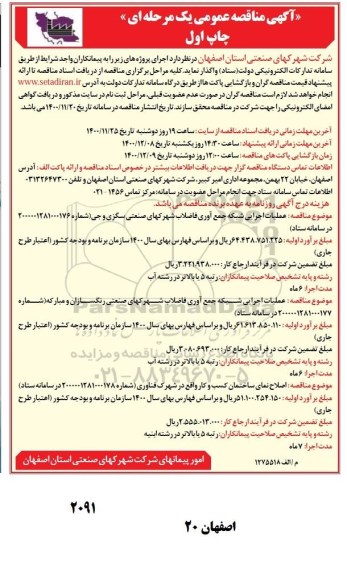 «آگهی مناقصه عمومی یک مرحله ای»
چاپ اول
شرکت شهرکهای صنعتی استان اصفهان در نظر دارد اجرای پروژه های زیر را به پیمانکاران واجد شرایط از طریق
سامانه تدارکات الکترونیکی دولت (ستاد) واگذار نماید. کلیه مراحل برگزاری مناقصه از دریافت اسناد مناقصه تا ارائه
پیشنهاد قیمت مناقصه گران و بازگشائی پاکت ها از طریق درگاه سامانه تدارکات دولت به آدرس www.setadiran.ir
انجام خواهد شد لازم است مناقصه گران در صورت عدم عضویت قبلی، مراحل ثبت نام در سایت مذکور و دریافت گواهی
امضای الکترونیکی را جهت شرکت در مناقصه محقق سازند. تاریخ انتشار مناقصه در سامانه تاریخ ۱۴۰۰/۱۱/۲۰ می باشد.
آخرین مهلت زمانی دریافت اسناد مناقصه از سایت: ساعت ۱۹ روز دوشنبه تاریخ ۱۴۰۰/۱۱/۲۵
آخرین مهلت زمانی ارائه پیشنهاد: ساعت ۱۴:۳۰ روز یکشنبه تاریخ ۱۴۰۰/۱۲/۰۸
زمان بازگشایی پاکت های مناقصه: ساعت ۱۲:۰۰ روز دوشنبه تاریخ ۱۴۰۰/۱۲/۰۹
اطلاعات تماس دستگاه مناقصه گزار جهت دریافت اطلاعات بیشتر در خصوص اسناد مناقصه و ارائه پاکت الف: آدرس
اصفهان، خیابان ۲۲ بهمن، مجموعه اداری امیرکبیر، شرکت شهرکهای صنعتی استان اصفهان و تلفن ۰۳۱۳۲۶۴۷۳۰۰
اطلاعات تماس سامانه ستاد جهت انجام مراحل عضویت در سامانه: مرکز تماس ۱۴۵۶-۰۲۱
هزینه درج آگهی روزنامه به عهده برنده مناقصه می باشد.
موضوع مناقصه: عملیات اجرایی شبکه جمع آوری فاضلاب شهرکهای صنعتی سگزی و جی (شماره ۲۰۰۰۰۰۱۲۸۱۰۰۰۱۷۶
در سامانه ستاد)
مبلغ برآورد اولیه: ۶۴.۴۳۸.۷۵۱.۳۲۵ ریال و براساس فهارس بهای سال ۱۴۰۰ سازمان برنامه و بودجه کشور (اعتبار طرح
جاری)
مبلغ تضمین شرکت در فرآیند ارجاع کار: ۳.۲۲۱.۹۳۸.۰۰۰ ریال
رشته و پایه تشخیص صلاحیت پیمانکاران: رتبه ۵ یا بالاتر در رشته آب
مدت اجرا: ۶ ماه
موضوع مناقصه: عملیات اجرایی شبکه جمع آوری فاضلاب شهرکهای صنعتی رنگسازان و مبارکه (شماره
۲۰۰۰۰۰۱۲۸۱۰۰۰۱۷۷ در سامانه ستاد)
مبلغ برآورد اولیه: ۶۱.۶۱۳.۸۵۰.۱۱۰ ریال و براساس فهارس بهای سال ۱۴۰۰ سازمان برنامه و بودجه کشور (اعتبار طرح
جاری)
مبلغ تضمین شرکت در فرآیند ارجاع کار: ۳.۰۸۰.۶۹۳.۰۰۰ ریال
رشته و پایه تشخیص صلاحیت پیمانکاران: رتبه ۵ یا بالاتر در رشته آب
مدت اجرا: ۶ ماه
موضوع مناقصه: اصلاح نمای ساختمان کسب و کار واقع در شهرک فناوری (شماره ۲۰۰۰۰۰۱۲۸۱۰۰۰۱۷۸ در سامانه ستاد)
مبلغ برآورد اولیه: ۵۱.۱۰۰.۲۵۴.۱۵۰ ریال و براساس فهارس بهای سال ۱۴۰۰ سازمان برنامه و بودجه کشور (اعتبار طرح
جاری)
مبلغ تضمین شرکت در فرآیند ارجاع کار: ۲.۵۵۵.۰۱۳.۰۰۰ ریال
رشته و پایه تشخیص صلاحیت پیمانکاران: رتبه ۵ یا بالاتر در رشته ابنیه
مدت اجرا: ۷ ماه
م / الف ۱۲۷۵۵۱۸
امور پیمانهای شرکت شهرکهای صنعتی استان اصفهان
ParsNamadData
۰۲۱-۸۸۳۴۹۶۷۰-۵
۲۰۹۱
اصفهان ۲۰